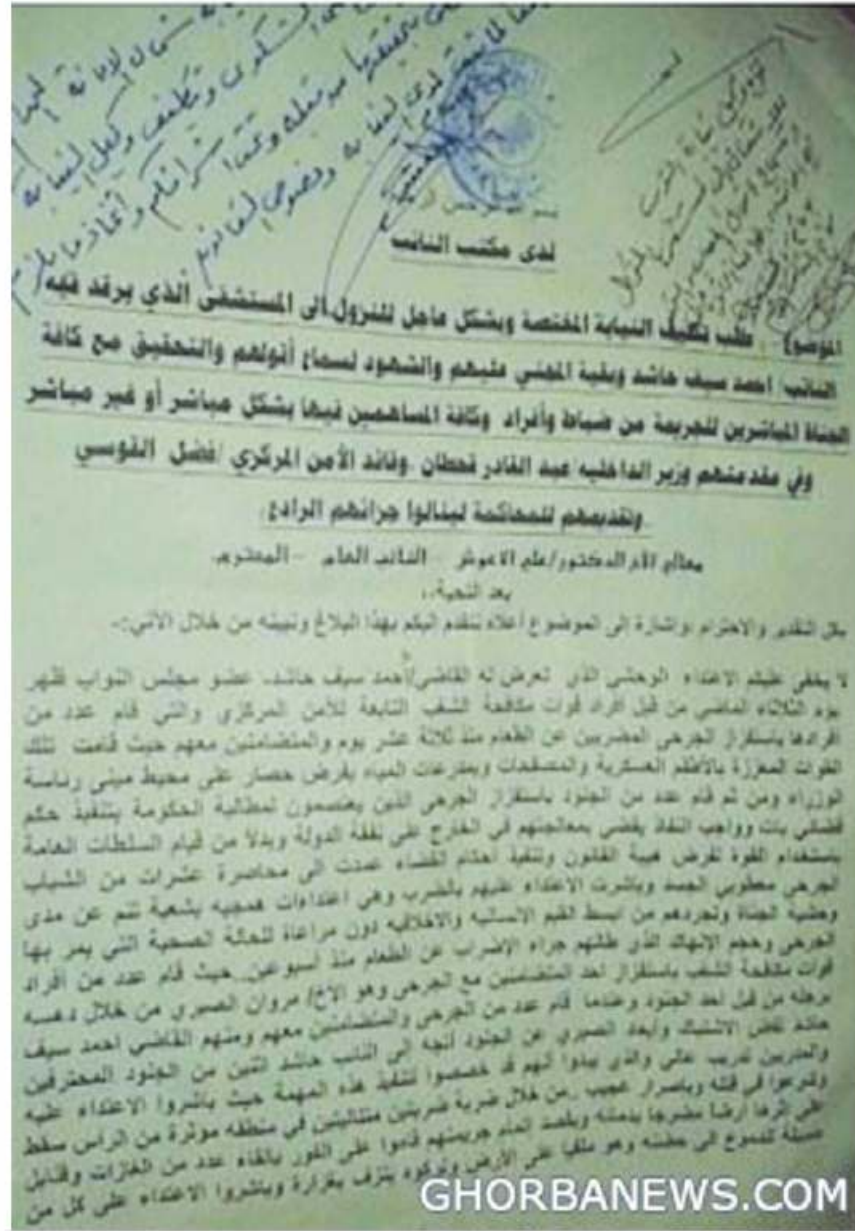 لدى مكتب النائب
الموضوع / طلب تكليف النيابة المختصة وبشكل عاجل للنزول إلى المستشفى الذي يرقد فيه
النائب/ احمد سيف حاشد وبقية المجني عليهم والشهود لسماع أقولهم والتحقيق مع كافة
الجناة المباشرين للجريمة من ضباط وأفراد وكافة المساهمين فيها بشكل مباشر أو غير مباشر
وفي مقدمتهم وزير الداخليه/عبد القادر قحطان .وقائد الأمن المركزي /فضل القوسي
وتقديمهم للمحاكمة لينالوا جزائهم الرادع.
معالي الأخ الدكتور/علي الاعوش - النائب العام - المحترم.
بعد التحية،،
بكل التقدير والاحترام وإشارة إلى الموضوع أعلاه نتقدم اليكم بهذا البلاغ ونبينه من خلال الآتي:-
لا يخفى عليكم الاعتداء الوحشي الذي تعرض له القاضي/أحمد سيف حاشد، عضو مجلس النواب ظهر
يوم الثلاثاء الماضي من قبل افراد قوات مكافحة الشغب التابعة للأمن المركزي والتي قام عدد من
افرادها باستفزاز الجرحى المضربين عن الطعام منذ ثلاثة عشر يوم والمتضامنين معهم حيث قامت تلك
القوات المعززة بالأطقم العسكرية والمصفحات وبمدرعات المياه بفرض حصار على محيط مبنى رئاسة
الوزراء ومن ثم قام عدد من الجنود باستفزاز الجرحى الذين يعتصمون لمطالبة الحكومة بتنفيذ حكم
قضائي بات وواجب النفاذ يقضي بمعالجتهم في الخارج على نفقة الدولة وبدلاً من قيام السلطات العامة
باستخدام القوة لفرض هيبة القانون وتنفيذ احكام القضاء عمدت الى محاصرة عشرات من الشباب
الجرحى معطوبي الجسد وباشرت الاعتداء عليهم بالضرب وهي اعتداءات همجيه بشعية تنم عن مدى
وحشيه الجناة وتجردهم من ابسط القيم الانسانيه والاخلاقيه دون مراعاة للحالة الصحية التي يمر بها
الجرحى وحجم الإنهاك الذي طالهم جراء الاضراب عن الطعام منذ أسبوعين. حيث قام عدد من افراد
قوات مكافحة الشغب باستفزاز احد المتضامنين مع الجرحى وهو الأخ/ مروان الصبري من خلال دهسه
برجله من قبل احد الجنود وعندما قام عدد من الجرحى والمتضامنين معهم ومنهم القاضي احمد سيف
حاشد بفض الاشتباك وأبعاد الصبري عن الجنود أتجه إلى النائب حاشد اثنين من الجنود المحترفين
والمدربين تدريب عالي والذي يبدوا أنهم قد خصصوا لتنفيذ هذه المهمة حيث باشروا الاعتداء عليه
وشرعوا في قتله وباصرار عجيب ..من خلال ضربة ضربتين متتاليتين في منطقه موثرة من الراس سقط
على إثرها أرضا مضرجا بدمائه وبقصد اتمام جريمتهم قاموا على الفور بالقاء عدد من الغازات وقنابل
مسيلة للدموع الى حضنه وهو ملقيا على الأرض وتركوه ينزف بغزارة وباشروا الاعتداء على كل من
GHORBANEWS.COM